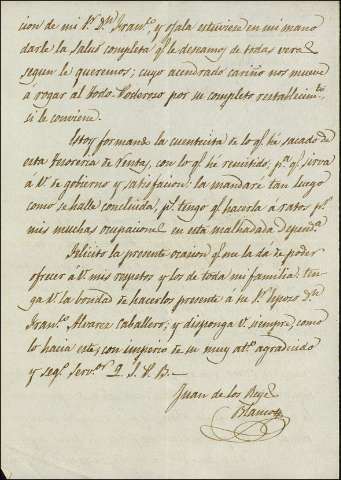 cion de mi Sr. Dn. Franco., y ojala estuviere en mi mano
darle la salud completa qe. le deseamos de todas veras
segun le queremos; cuyo acendrado cariño nos mueve
a rogar al todo Poderoso por su completo restablecimto.
si le conviene.
Estoy formando la cuentecita de lo qe. he sacado de
esta tesoreria de Renta, con lo qe. he remitido, pa. qe. sirva
á V. de gobierno y satisfacion: la mandaré tan luego
como se halle concluida, ps. tengo qe. hacerla á ratos pr.
mis muchas ocupaciones en esta malhadada dependa.
Felicito la presente ocasion qe. me la dá de poder
ofrecer á V. mis respetos y los de toda mi familia: ten-
ga V. la bondad de hacerlos presente a su Sr. Esposo Dn.
Franco. Alvarez Caballero; y disponga V. siempre como
lo hacia este, con imperio de su muy ato. agradecido
y sego. Servor. Q. S. P. B.
Juan de los Reyes
Blanco